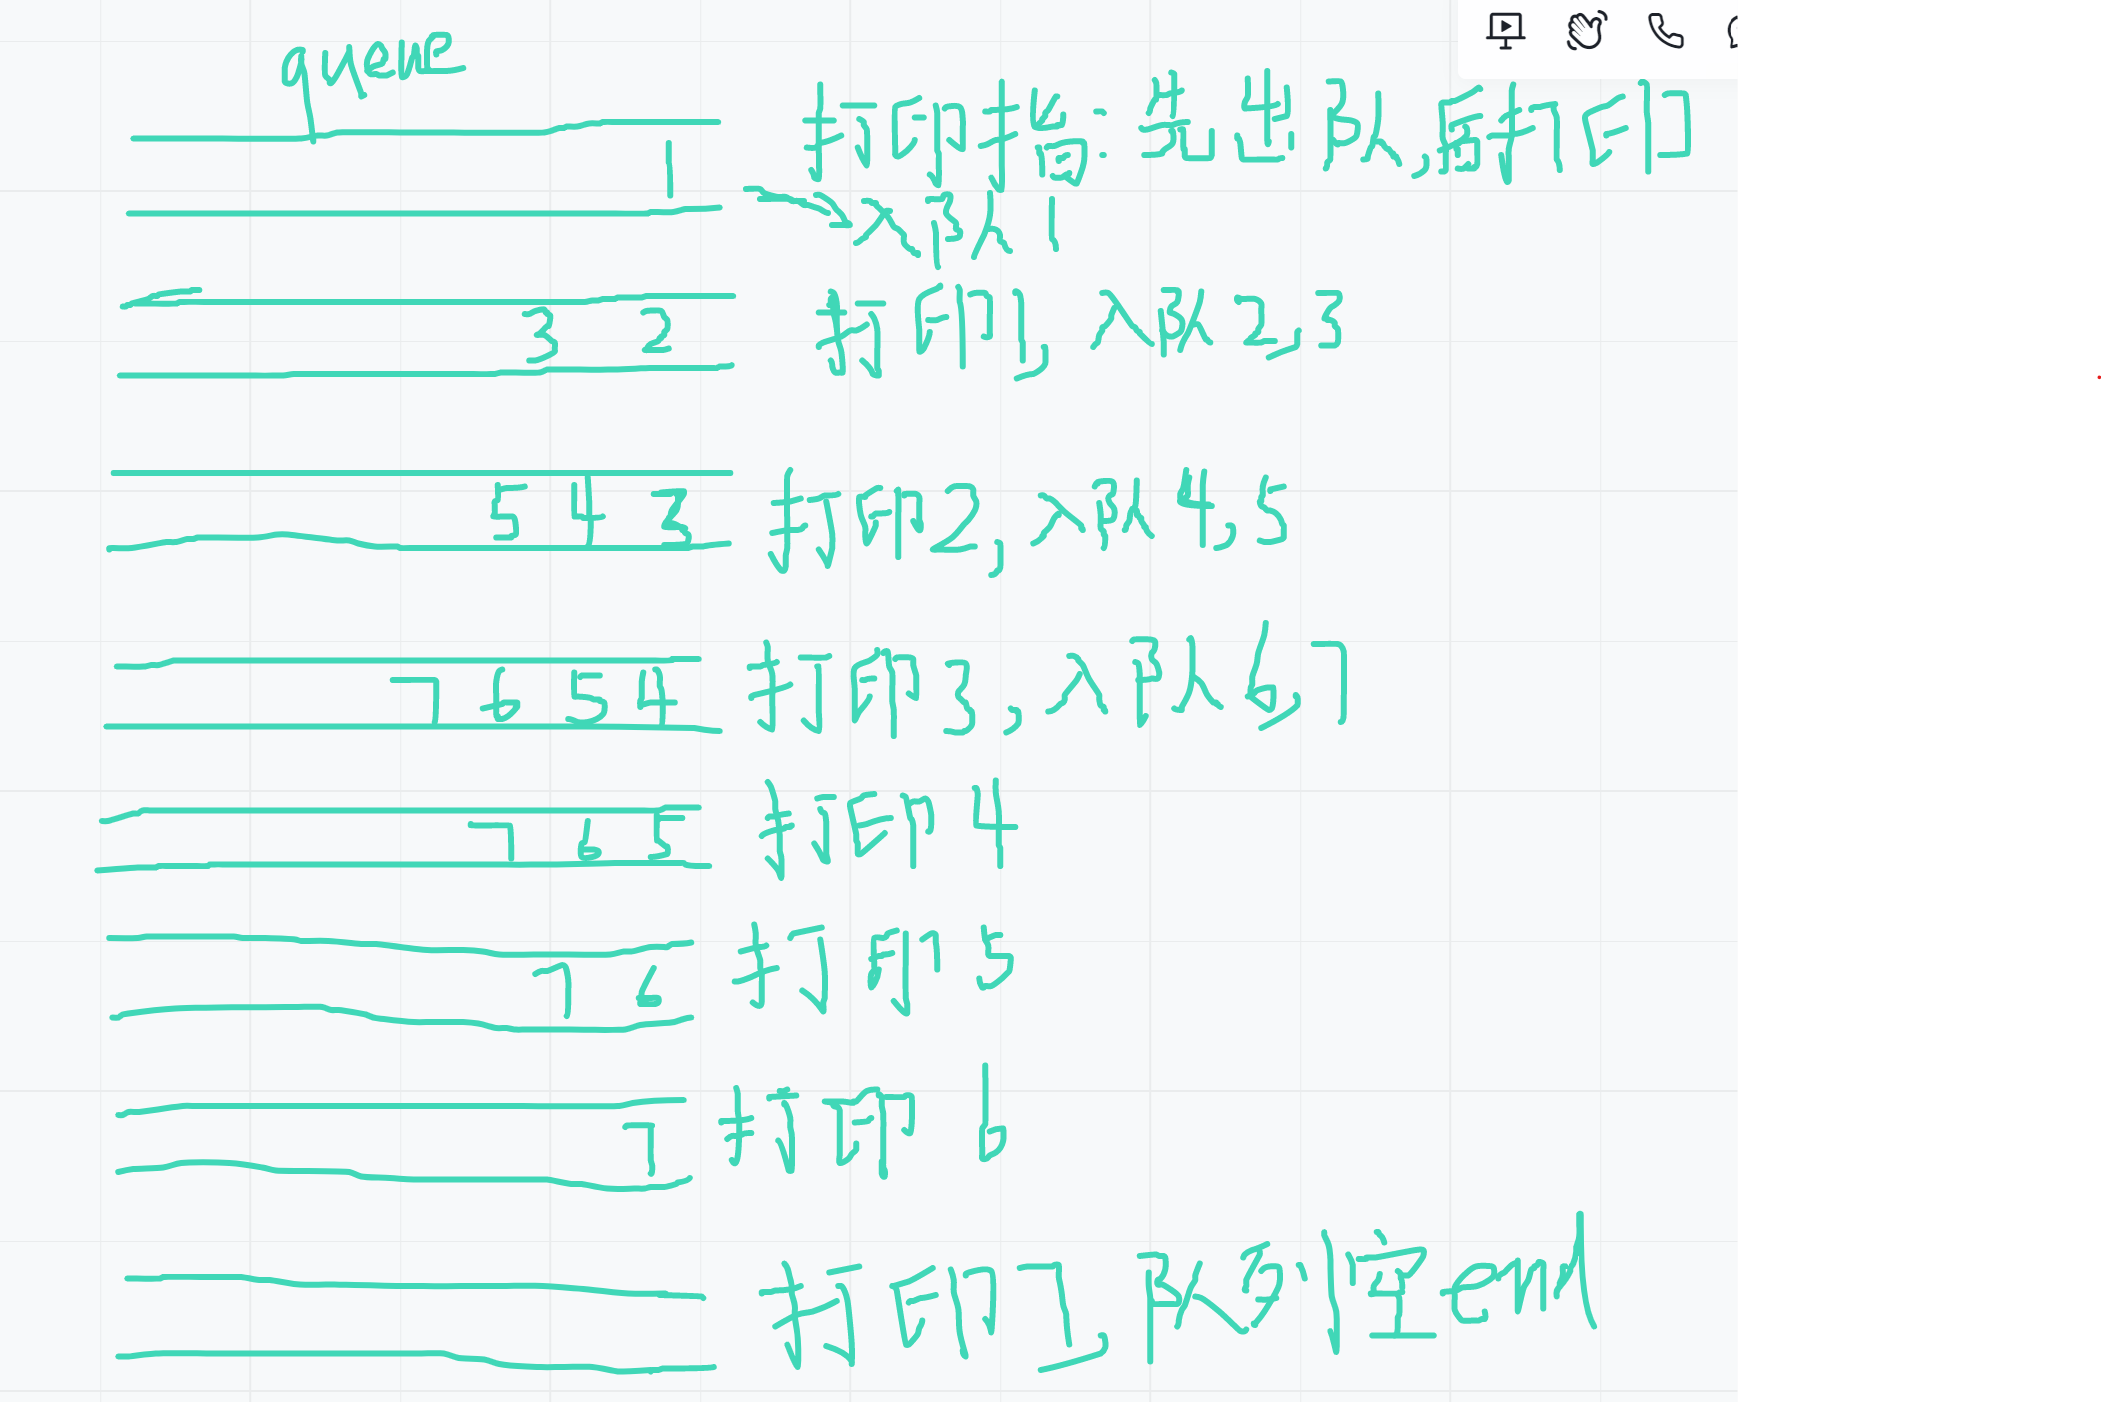 queue
打印指:先出队,再打印
1
入队1
3 2 打印1,入队2,3
5 4 3 打印2,入队4,5
7 6 5 4 打印3,入队6,7
7 6 5 打印4
7 6 打印5
7 打印6
打印7,队列空end